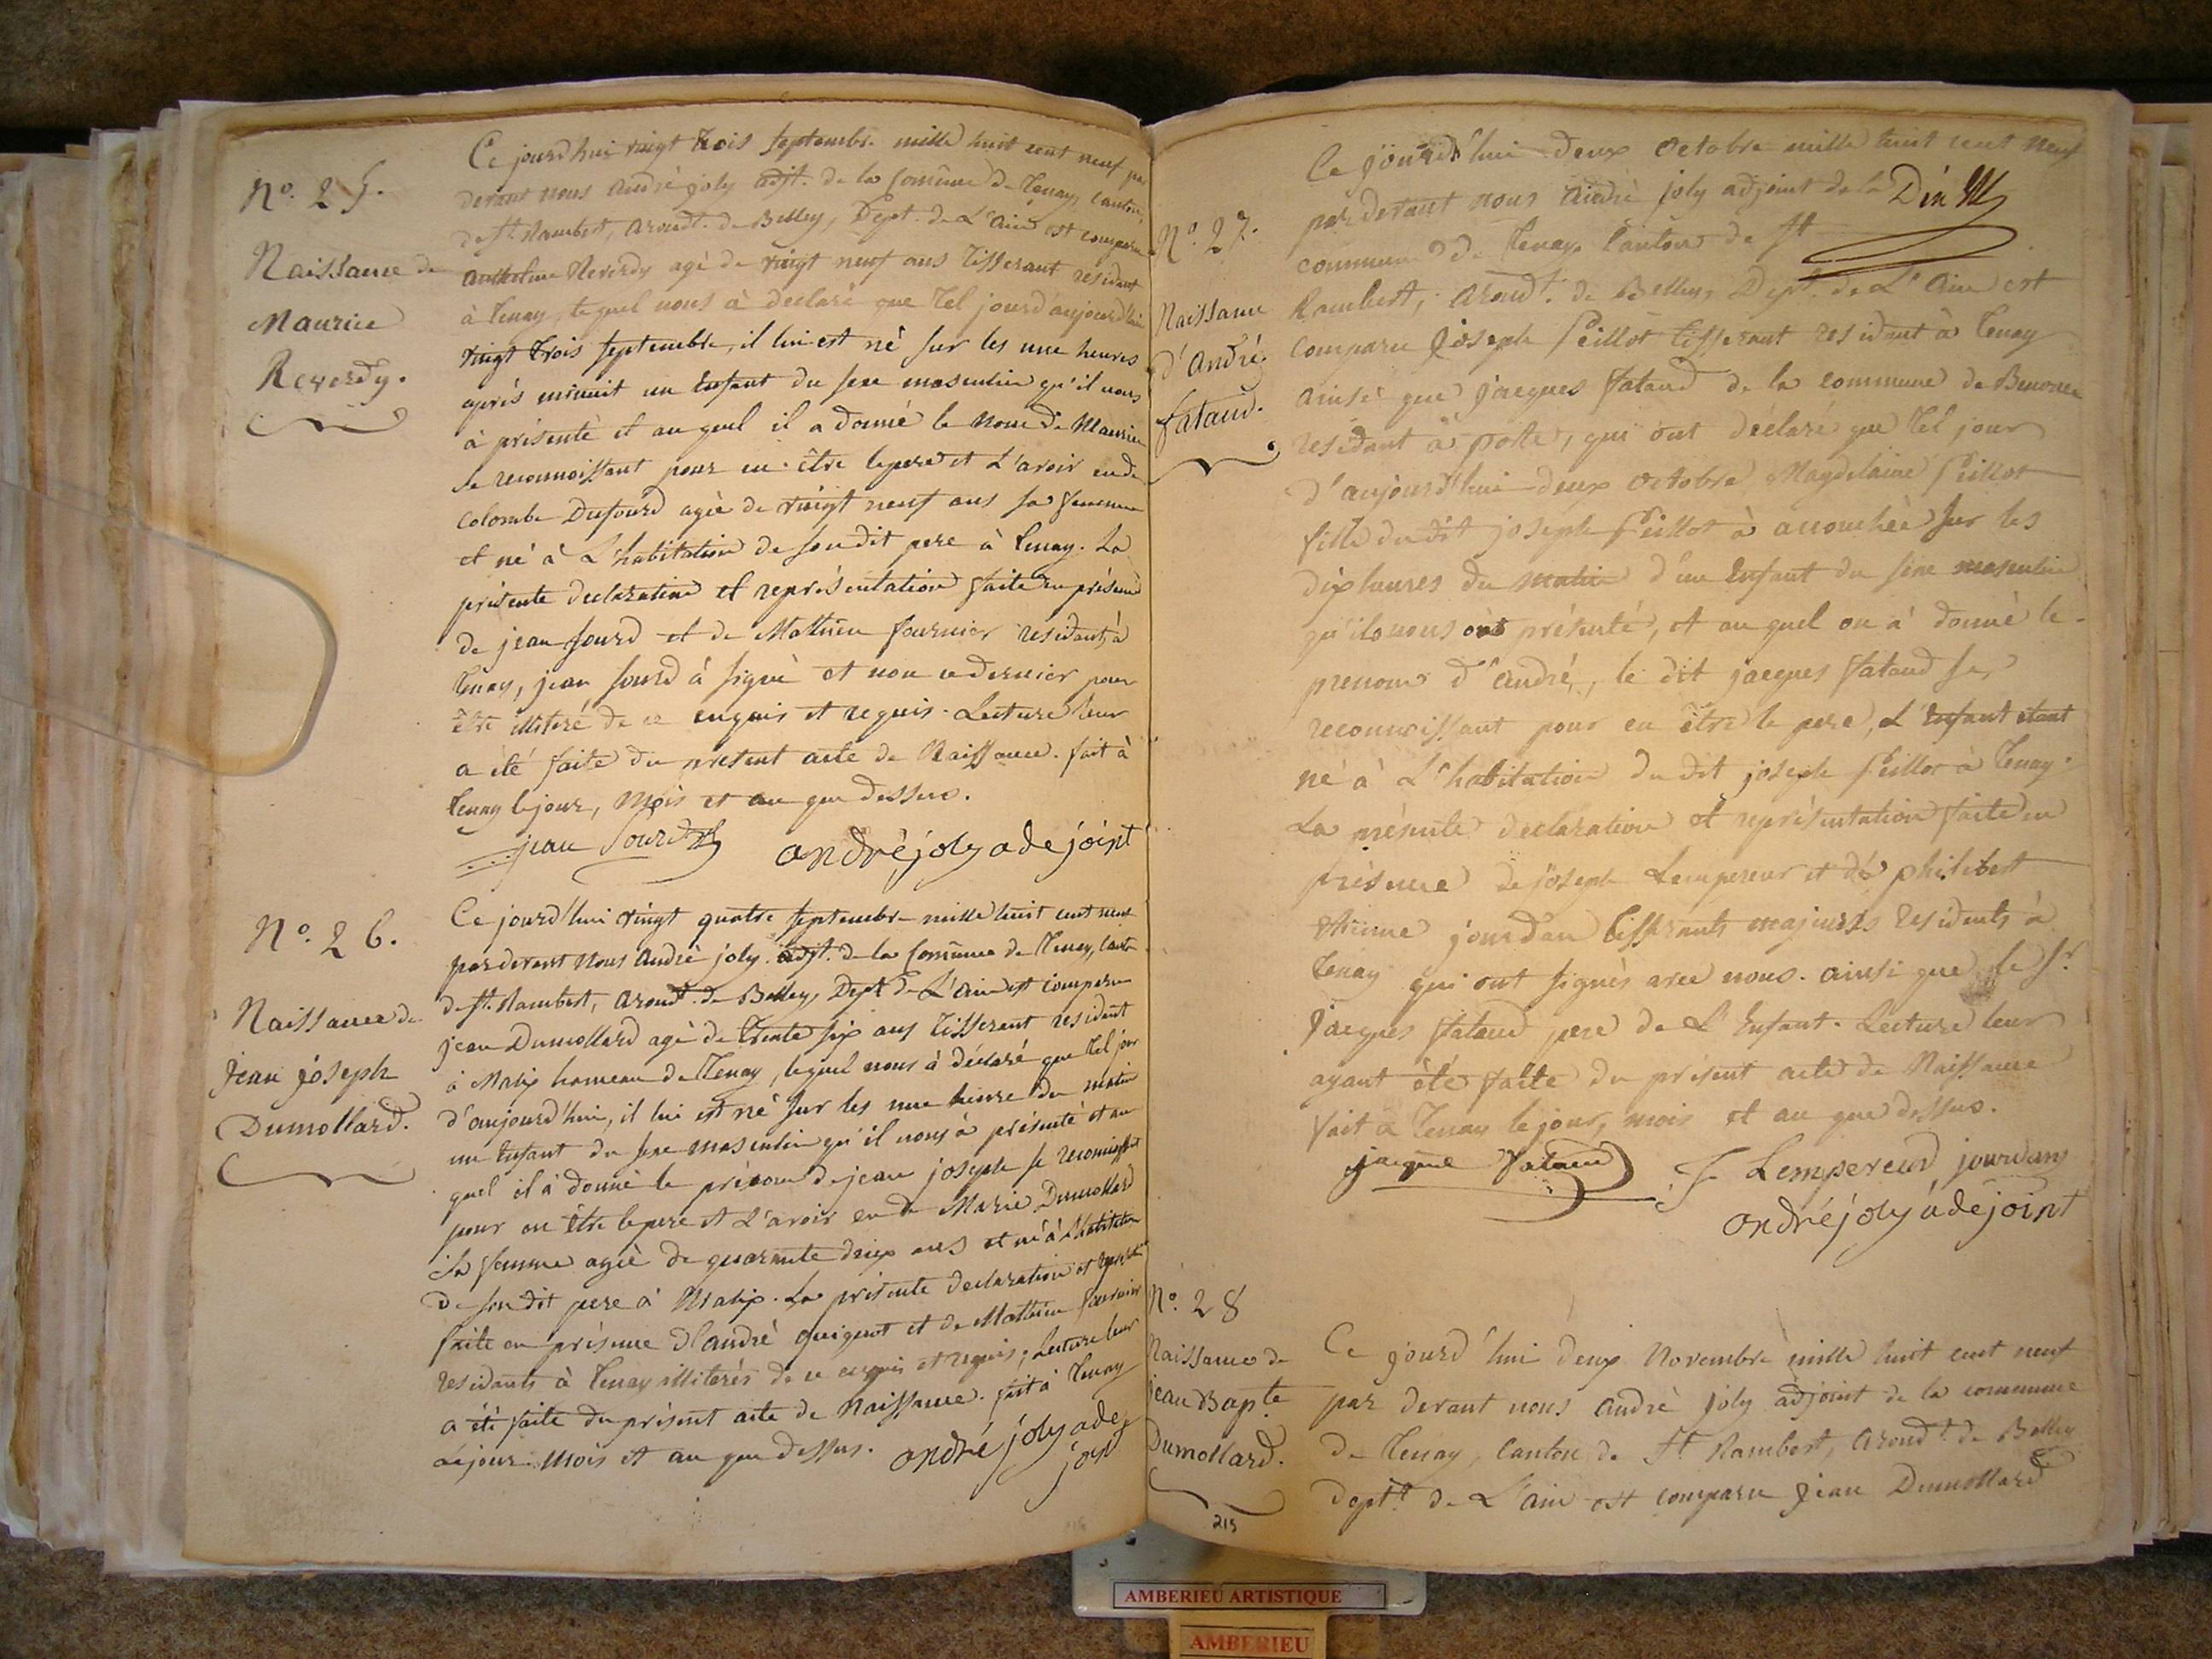 No. 25.
Naissance de
Maurice
Reverdy.
Ce jourd'hui vingt trois septembre mille huit cent neuf par
devant nous andré joly adjt. de la Commune de Tenay, canton
de St. Rambert, arondt. de Belley, Dept. de L'ain est comparu
anthelme Reverdy agé de vingt neuf ans tisserant residant
à tenay, lequel nous à declaré que tel jourd'aujourd'hui
vingt trois septembre, il lui est né sur les une heures
aprés minuit un enfant du sexe masculin qu'il nous
à présenté et au quel il a donné le nom de Maurice
se reconnoissant pour en être le pere et L'avoir eu de
Colombe Dufourd agée de vingt neuf ans sa femme
et né à L'habitation de son dit pere à tenay. La
présente declaration et représentation faite en présence
de jean sourd et de Mathieu fournier residants à
tenay, jean sourd à signé et non ce dernier pour
être illiteré de ce enquis et requis. Lecture leur
a été faite du present acte de Naissance. fait à
tenay le jour, mois et an que dessus.
jean Sourd andré joly adejoint
No. 26.
Naissance de
jean joseph
Dumollard.
Ce jourd'hui vingt quatre septembre mille huit cent neuf
pardevant nous andré joly adjt. de la Commune de Tenay, canton
de St. Rambert, arondt. de Belley, Dept. de L'ain est comparu
jean Dumollard agé de trente six ans tisserent resident
à Malix hameau de Tenay, lequel nous à déclaré que tel jour
d'aujourd'hui, il lui est né sur les une heure du matin
un enfant du sexe masculin qu'il nous à présenté et au
quel il à donné le prénom de jean joseph se reconnoissant
pour en être le pere et L'avoir eu de Marie Dumollard
Sa femme agée de quarante deux ans et né à L'habitation
de son dit pere à Malix. La présente declaration et représt.
faite en présence d'andré guigant et de Mathieu fournier
residants à Tenay illiterés de ce enquis et requis; Lecture leur
a été faite du présent acte de Naissance. fait à Tenay
Le jour mois et an que dessus. andré joly ade
joint
No. 27.
Naissance
d'André
fataud.
Ce jourd'hui deux Octobre mille huit cent neuf
par devant nous andré joly adjoint de la
commune de Tenay Canton de St
Rambert, arondt. de Belley, Dept. de L'Ain est
comparu joseph Peillot tisserant residant à Tenay
ainsi que jacques fataud de la commune de
residant à porte, qui ont déclaré que tel jour
d'aujourd'hui deux Octobre Magdelaine Peillot
fille du dit joseph Peillot à accouchée sur les
dix heures du matin d'un enfant du sexe masculin
qu'ils nous ont présenté, et au quel on à donné le
prenom d'andré, le dit jacques fataud se
reconnoissant pour en être le pere, L'enfant étant
né à L'habitation du dit joseph Peillot à Tenay.
La présente declaration et représentation faite en
présence de joseph Lempereur et de philibert
étienne jourdan tisserants majeurs residents à
Tenay qui ont signés avec nous. ainsi que le Sr.
Jacques fataud pere de L'enfant. Lecture leur
ayant été faite du present acte de Naissance
fait à Tenay le jour, mois et an que dessus.
jacque fataud J Lempereur jourdans
andré joly adejoint
No. 28
Naissance de
jean Bapte
Dumollard.
Ce jourd'hui deux Novembre mille huit cent neuf
par devant nous andré joly adjoint de la commune
de Tenay, canton de St Rambert, arondt. de Belley
dept. de L'ain est comparu jean Dumollard
215
AMBERIEU ARTISTIQUE
AMBERIEU